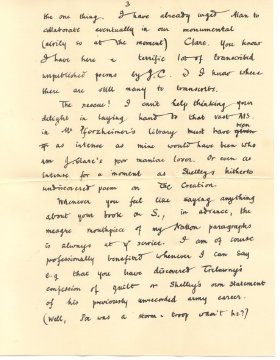 3
the one thing. I have already urged Alan to
collaborate eventually in our monumental
(airily so at the moment) Clare. You know
I have here a terrific lot of transcribed
unpublished poems by J.C. & I know where
there are still many to transcribe.
The rescue! I can't help thinking your
delight in laying hand to that vast MS.
in Mr Pforzheimer's library must have been
as intense as mine would have been who
am J. Clare's poor maniac lover. Or even as
intense for a moment as Shelley's hitherto
undiscovered poem on The Creation.
Whenever you feel like saying anything
about your book on S., in advance, the
meagre mouthpiece of my Nation paragraphs
is always at yr service. I am of course
professionally benefited whenever I can say
e.g. that you have discovered Trelawny's
confession of guilt or Shelley's own statement
of his previously unrecorded army career.
(Well, was a storm-troop wasn't he?)